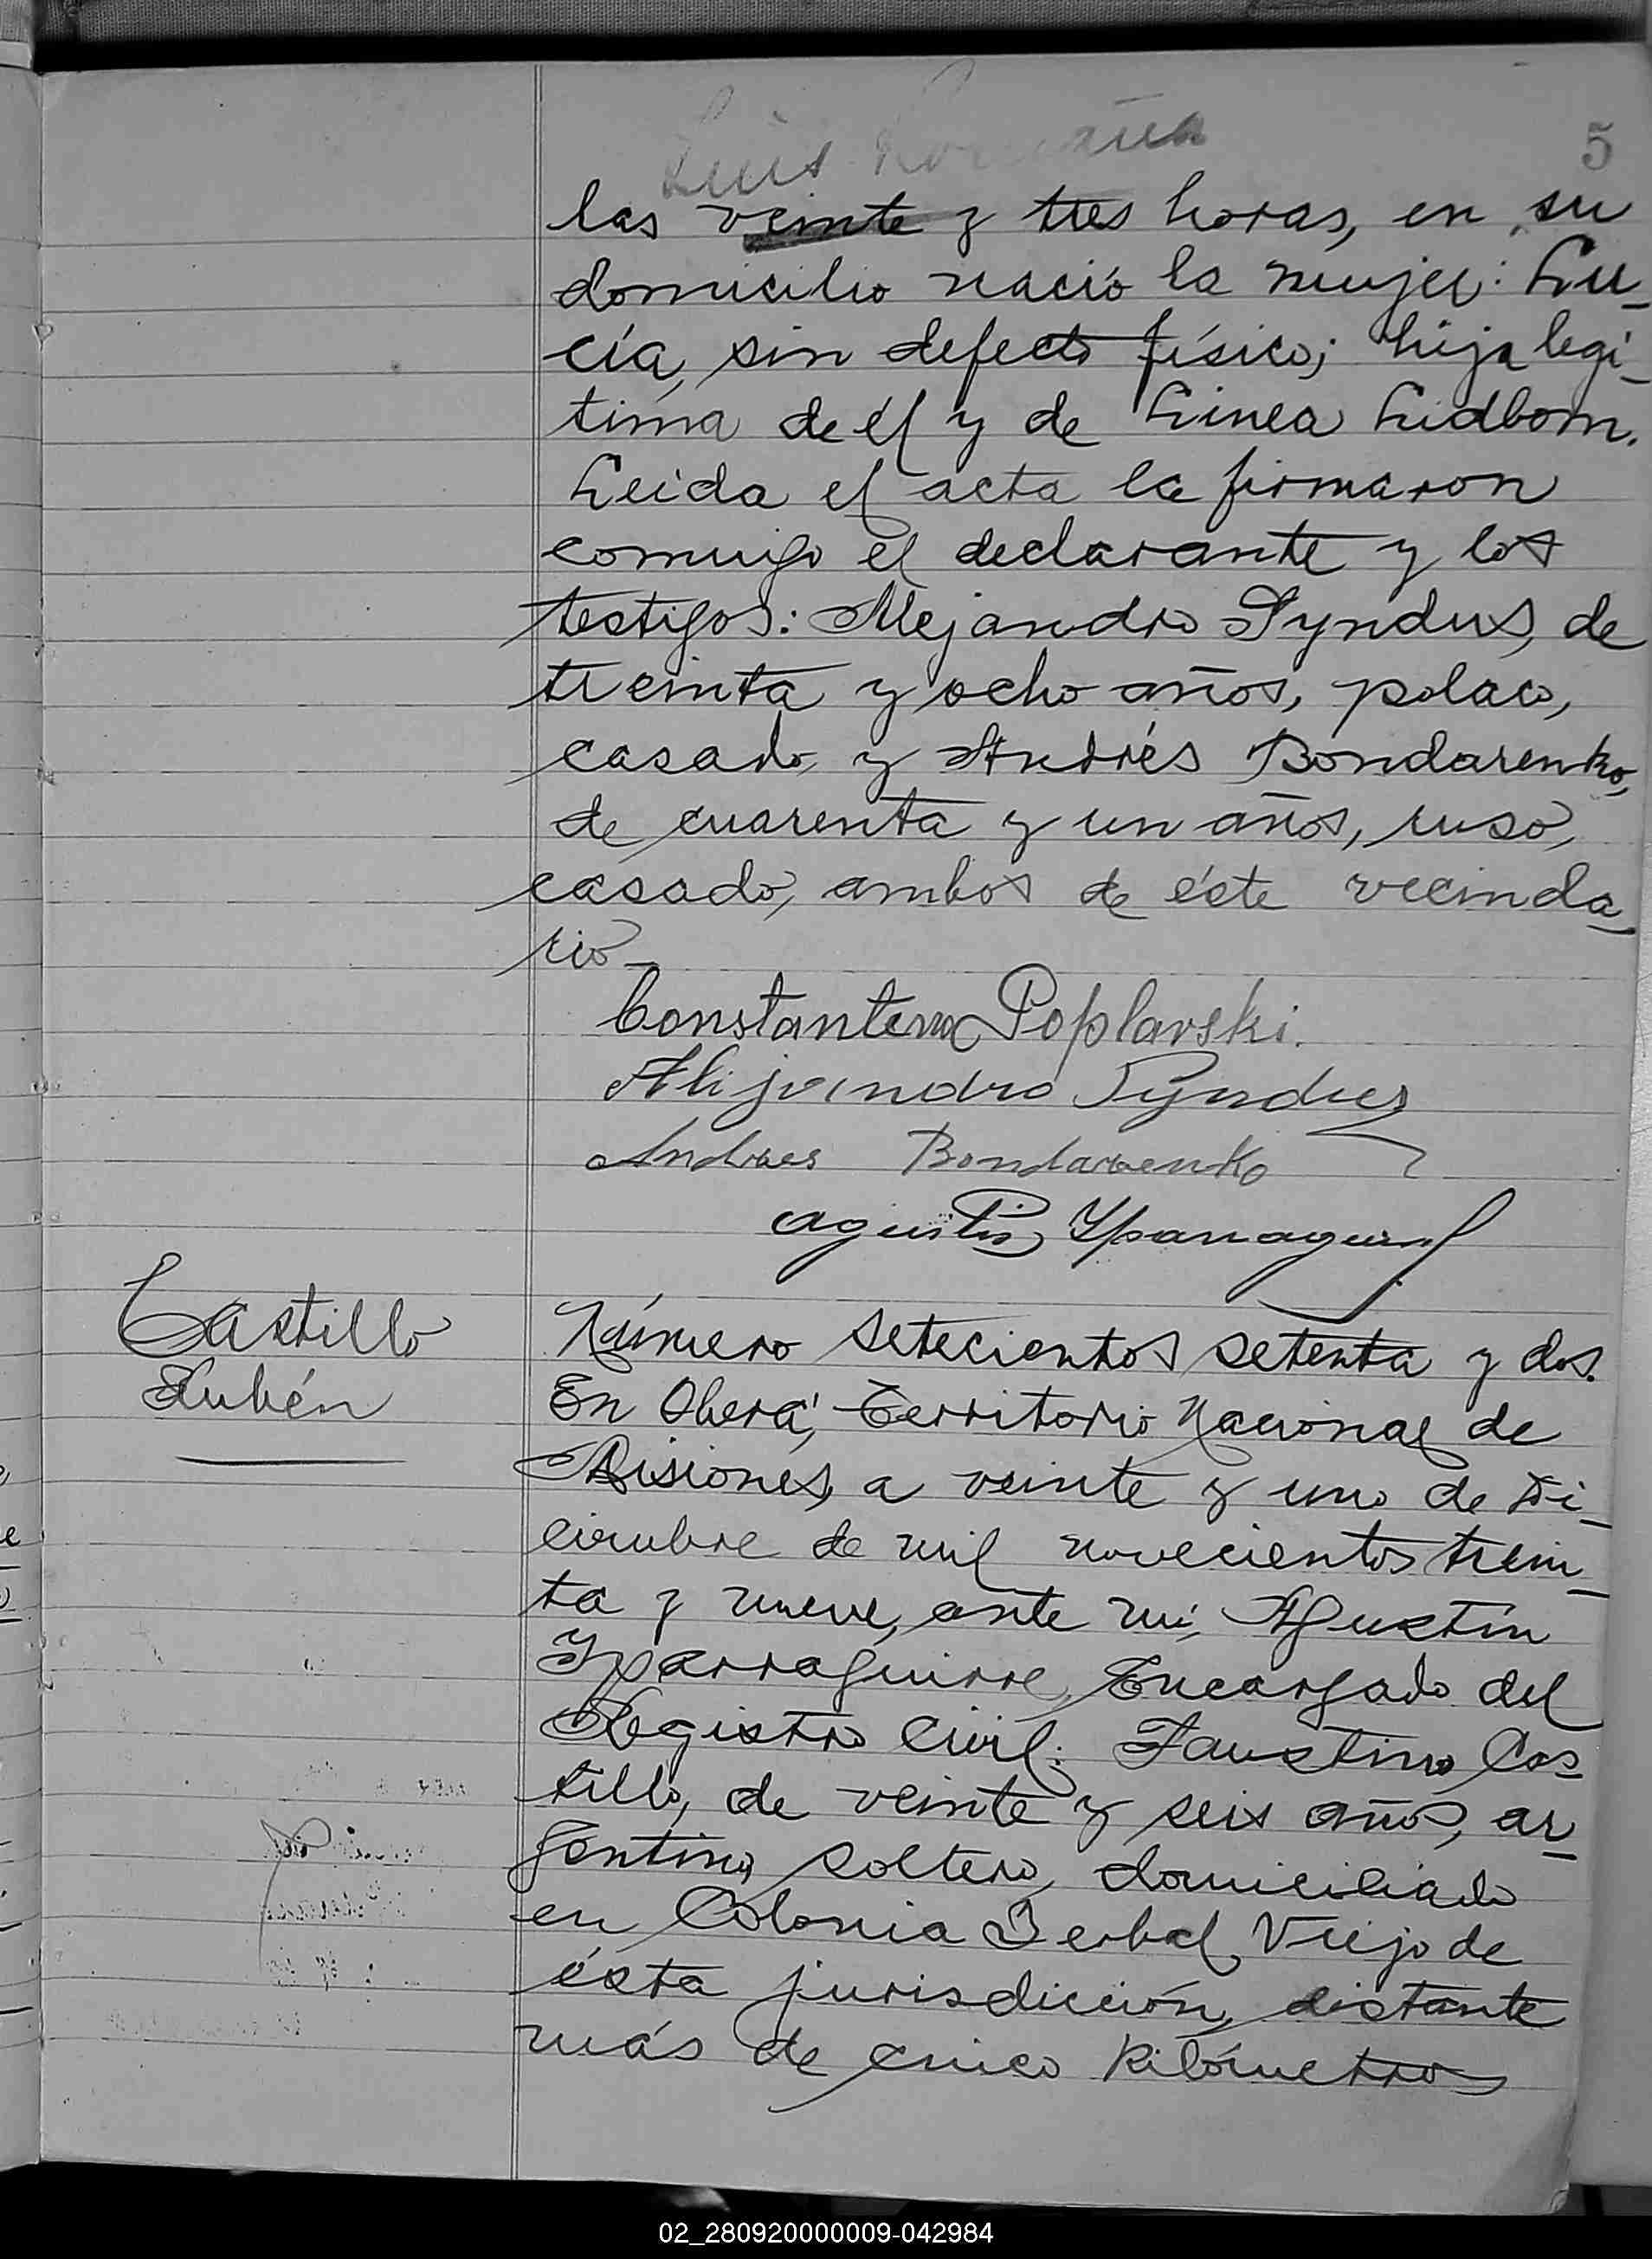 5
Luis
las veinte y tres horas, en su
domicilio nació la mujer: Lu-
cía, sin defecto físico; hija legí-
tima de él y de Linea Lidbom.
Leida el acta la firmaron
conmigo el declarante y los
testigos: Alejandro Syndus, de
treinta y ocho años, polaco,
casado, y Andrés Bondarenko,
de cuarenta y un años, ruso,
casado, ambos de éste vecinda-
rio-
Poplavski.
Alijandro
Andres Bondarenko
Agustín Yparraguirre
Castillo
Rubén
Número setecientos setenta y dos.
En Oberá, Territorio Nacional de
Misiones, a veinte y uno de Di-
ciembre de mil novecientos trein-
ta y nueve, ante mi, Agustín
Yparraguirre, Encargado del
Registro Civil: Faustino Cas-
tillo, de veinte y seis años, ar-
gentino, soltero, domiciliado
en Colonia Yerbal Viejo de
ésta jurisdicción, distante
más de cinco kilómetros
02_280920000009-042984